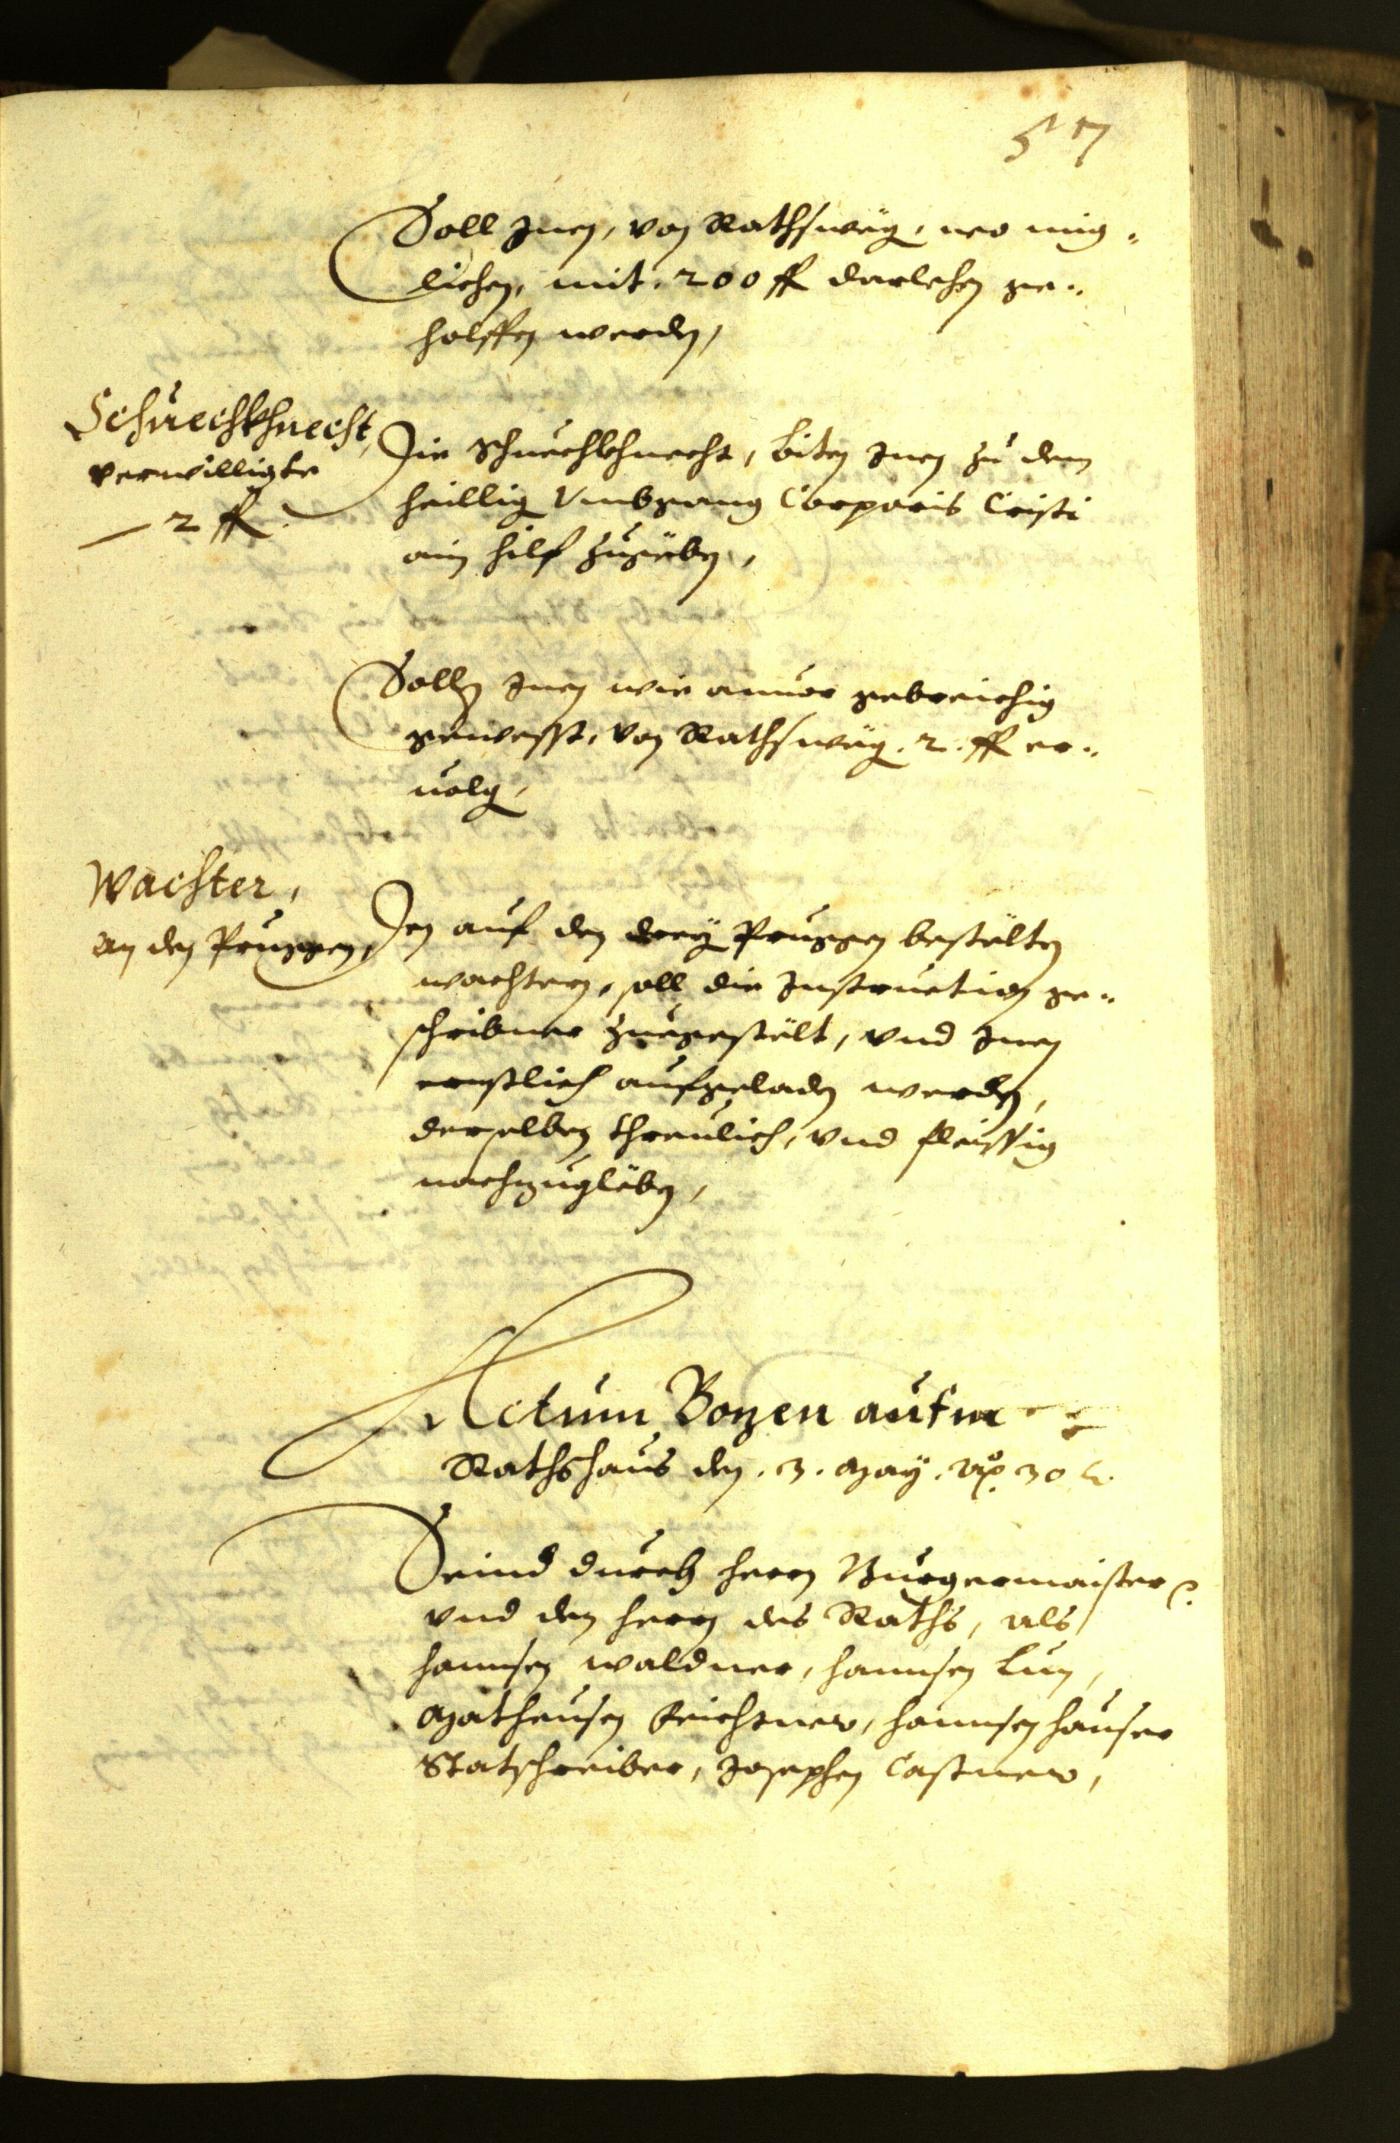 57
Soll Inen, von Rathswëg, wo müg-
lichen, mit 200 fl darlehen ge-
holffen werden,
Schuechkhnecht,
verwilligte
2 fl.
Die Schuechkhnecht, biten Inen zu dem
heillig Vmbgang Corporis Cristi
ain hilf zugëben,
Sollen Inen wie anuor gebreichig
gewesst, von Rathswëg. 2. fl er-
uolg,
Wachter,
an den Pruggen,
Den auf den drey Pruggen bestëlten
wachtern, soll die Instruction ge-
schribner zuegestëlt, vnd Inen
ernstlich aufgeladen werden,
derselben threulich, vnd fleissig
nachzuglëben,
Actum Bozen aufm
Rathshaus den .3. May. Ao. 30
Seind durch herrn Burgermaister
vnd den herrn des Raths, als
hannsen waldner, hannsen Lun,
Matheusen Feichtner, hannsen hauser
Statschreiber, Josephen Castner,